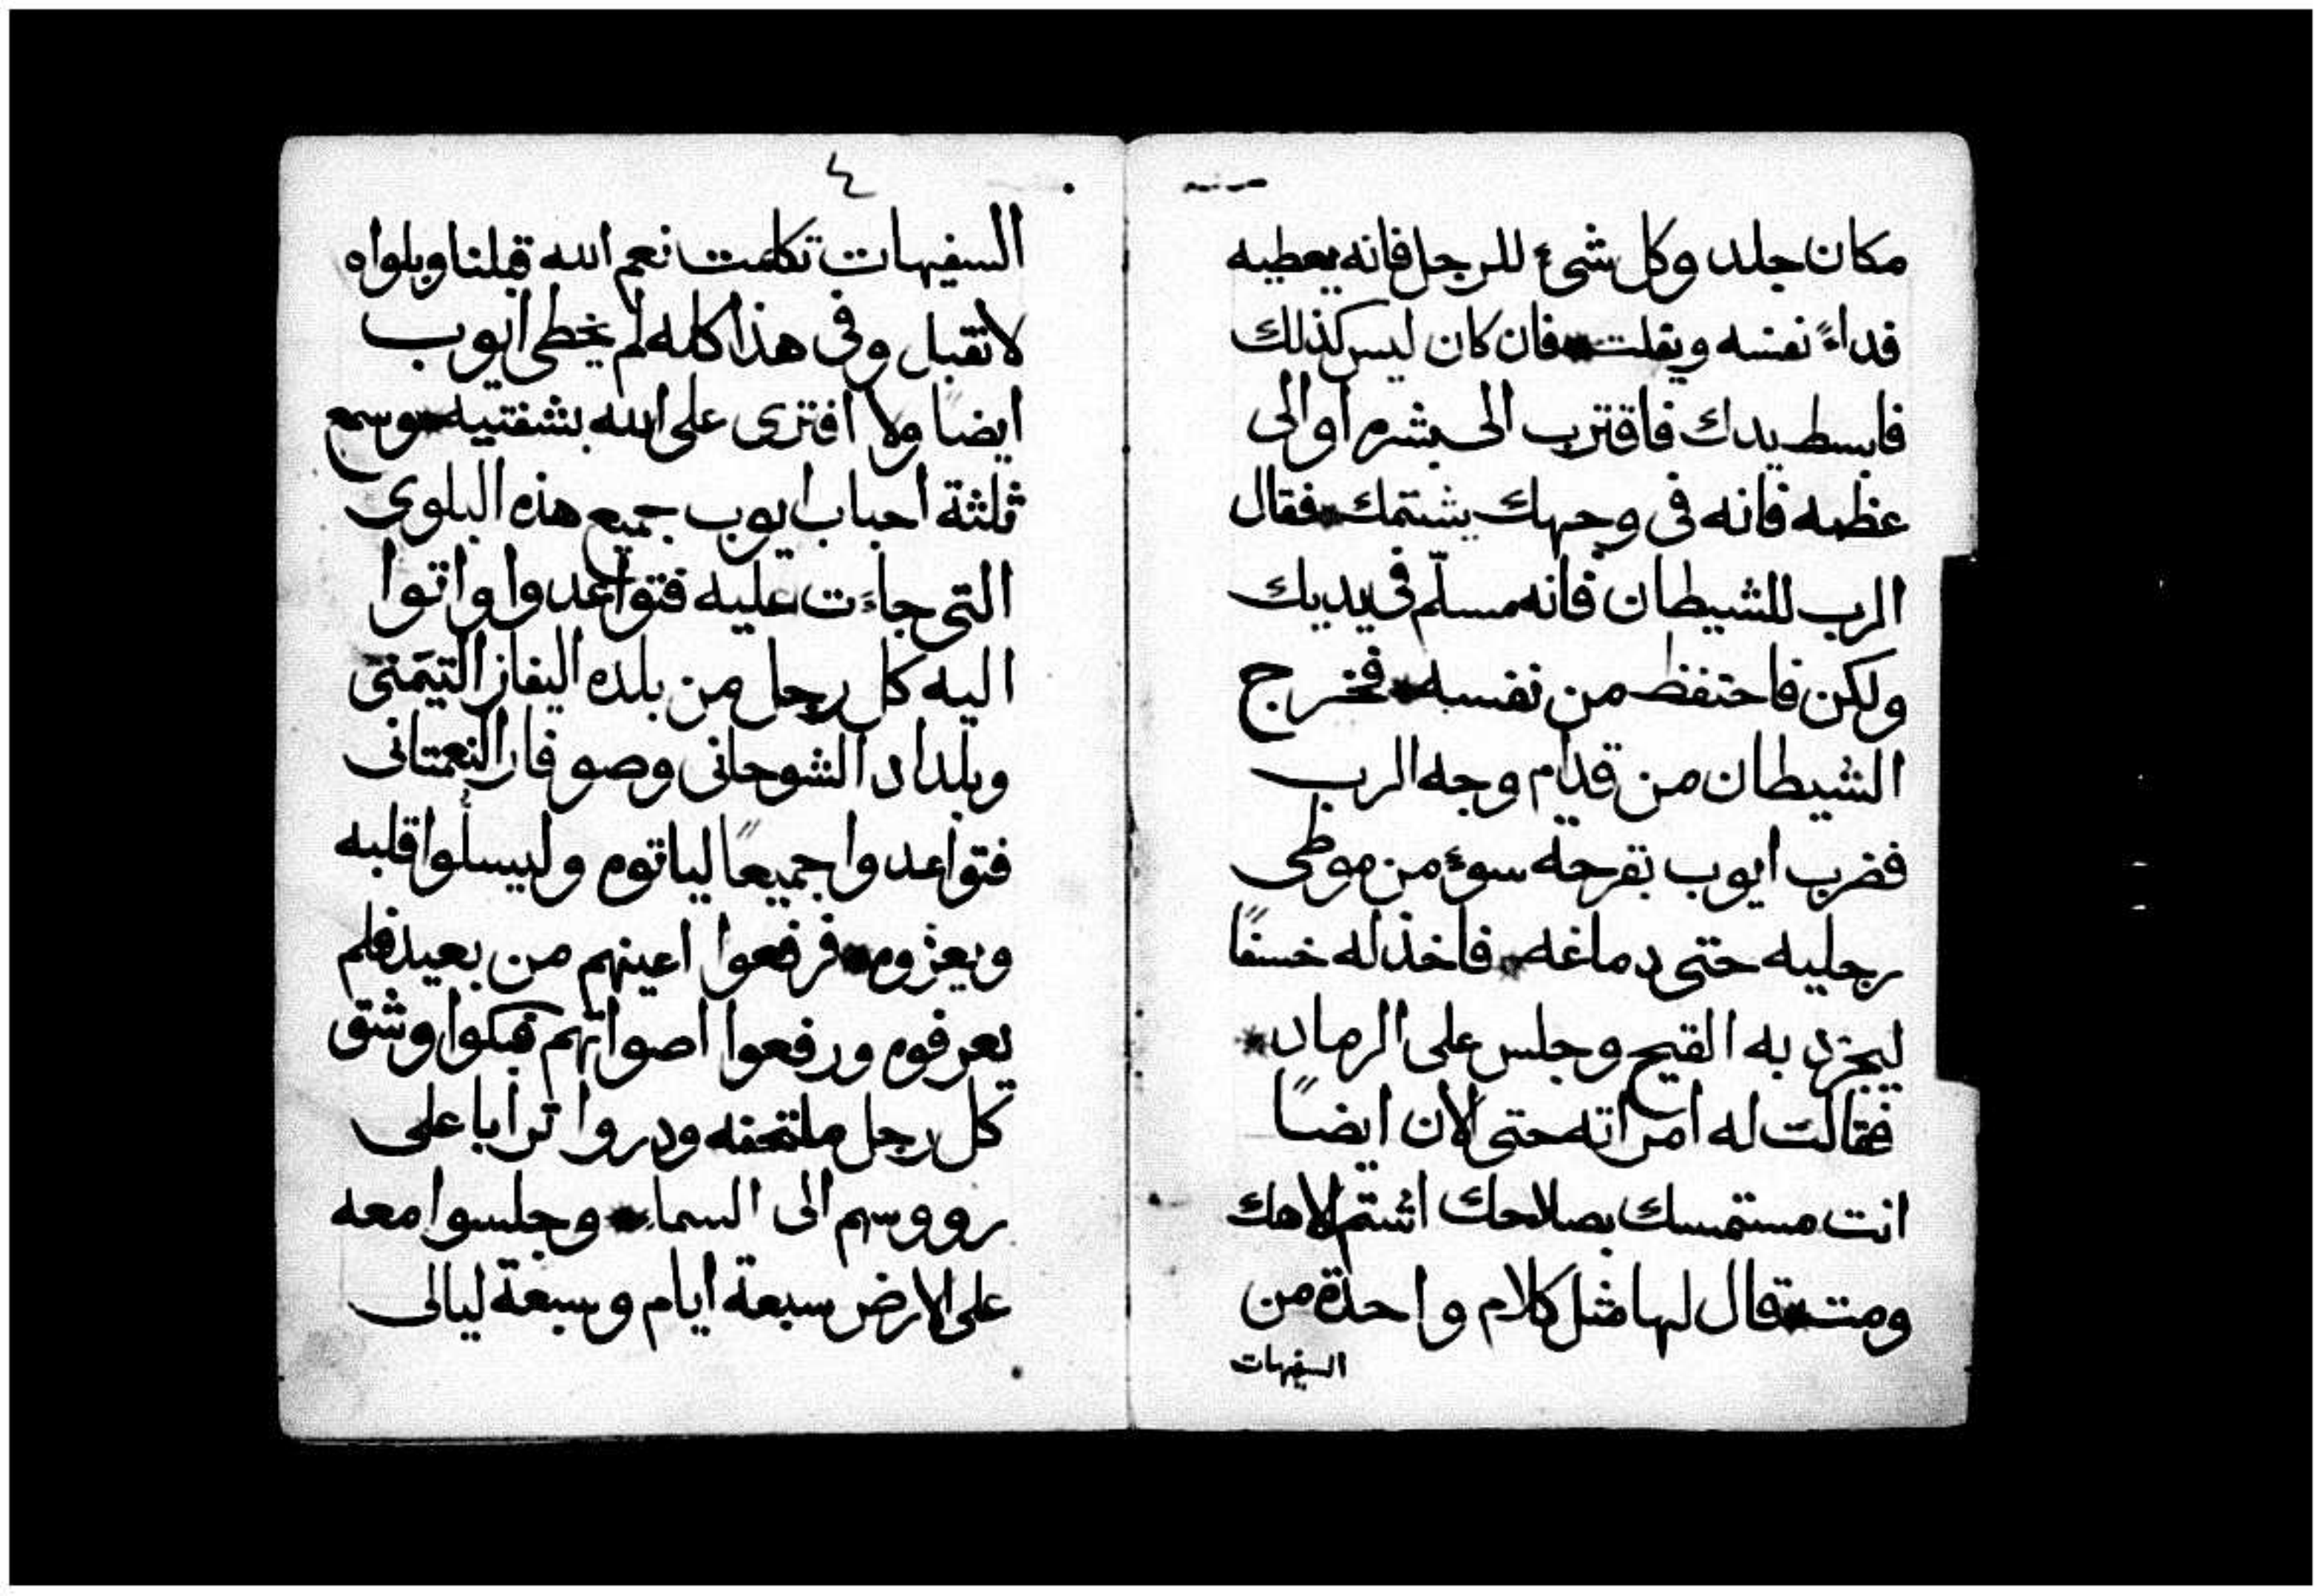 مكان جلد وكل شىء للرجل فانه يعطيه
فداءً نفسه ويفلت * فان كان ليس كذلك
فابسط يدك فاقترب الى بشره او الى
عظمه فانه فى وجهك يشتمك * فقال
الرب للشيطان فانه مسلّم فى يديك
ولكن فاحتفظ من نفسه * فخرج
الشيطان من قدام وجه الرب
فضرب ايوب بقرحة سوء من موطى
رجليه حتى دماغه * فاخذ له خسفًا
ليجرد به القيح وجلس على الرماد *
فقالت له امراته حتى الان ايضًا
انت مستمسك بصلاحك اشتم الاهك
ومت * فقال لها مثل كلام واحدة من
السفيهات
٤
السفيهات تكلمت نعم الله قبلنا وبلواه
لا نقبل وفى هذا كله لم يخطى ايوب
ايضًا ولا افترى على الله بشفتيه * وسمع
ثلثة احباب ايوب جميع هذه البلوى
التى جاءت عليه فتواعدوا واتوا
اليه كل رجل من بلده اليفاز التيمَنى
وبلداد الشوحانى وصوفار النعمتانى
فتواعدوا جميعًا لياتوه وليسلوا قلبه
ويعزوه * فرفعوا اعينهم من بعيد فلم
يعرفوه ورفعوا اصواتهم فبكوا وشق
كل رجل ملتحفه ودروا ترابا على
رووسهم الى السماء * وجلسوا معه
على الارض سبعة ايام وسبعة ليالى